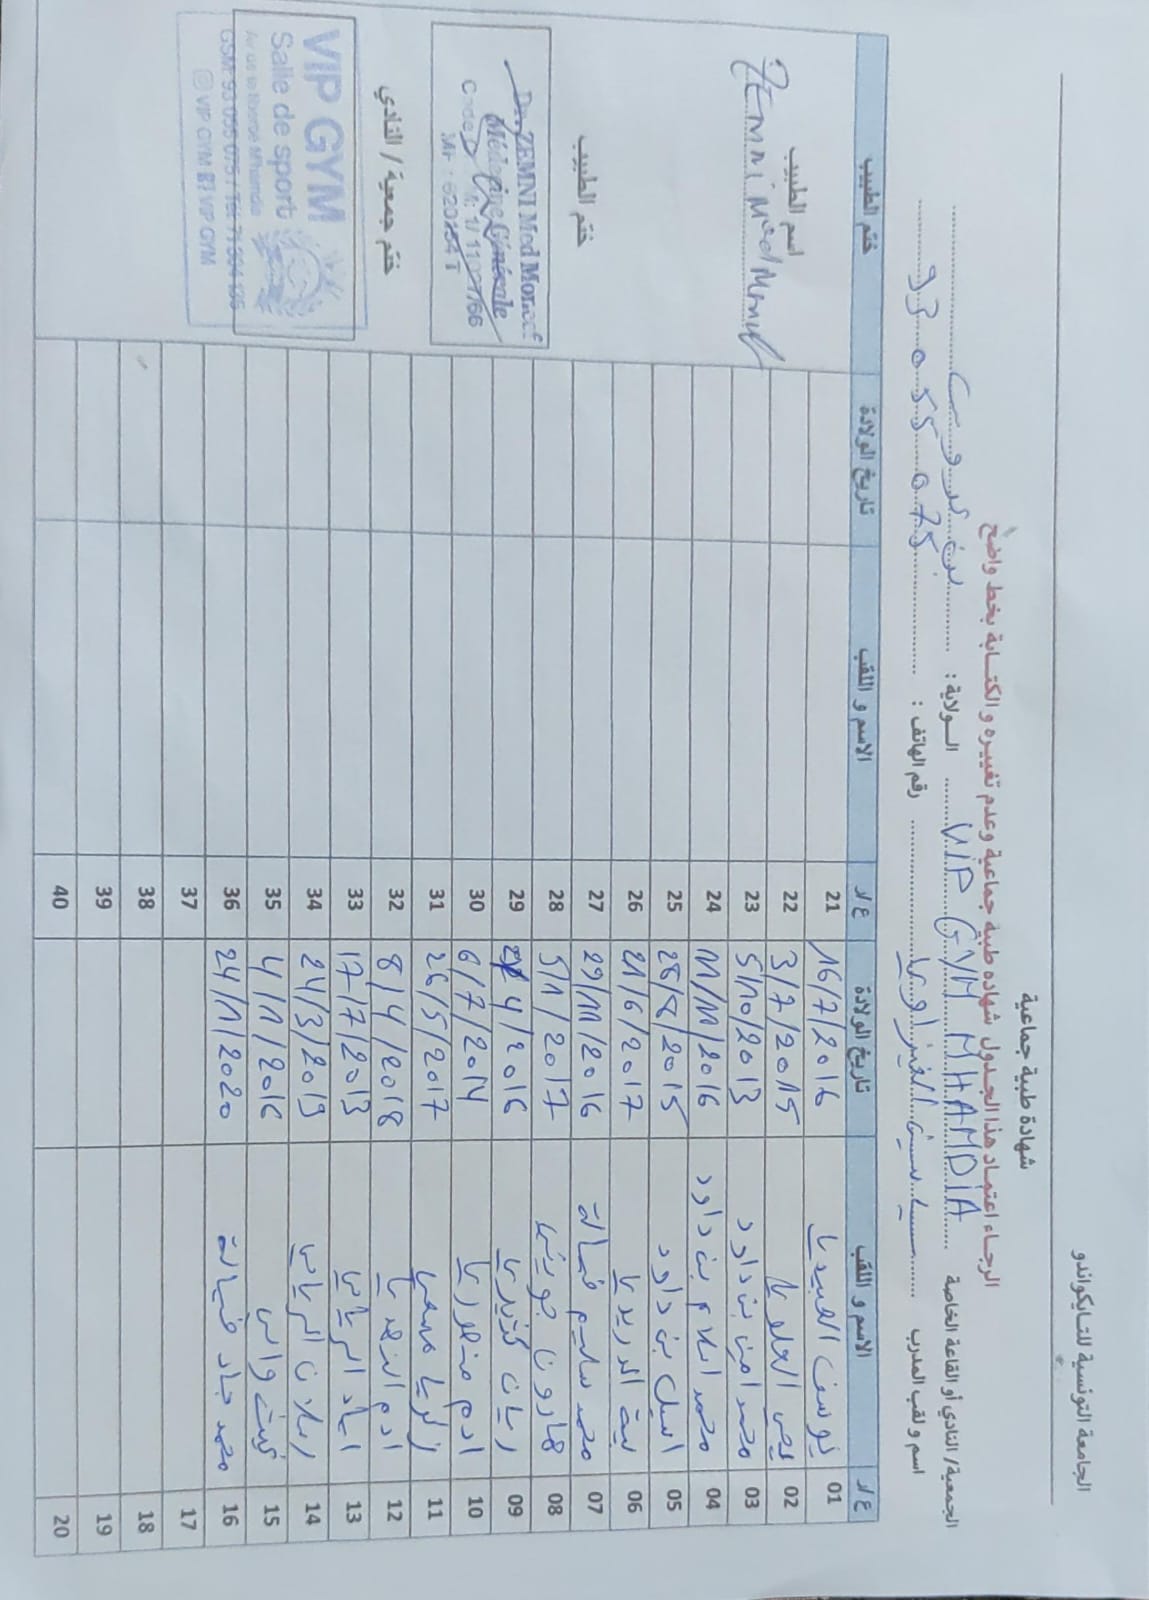 الجامعة التونسية للتايكواندو
شهادة طبية جماعية
الرجاء اعتماد هذا الجدول شهادة طبية جماعية وعدم تغييره و الكتابة بخط واضح
الجمعية/ النادي أو القاعة الخاصة VIP GYM MHAMDIA الولاية : بن عروس
اسم و لقب المدرب رقم الهاتف : 93 055 075
ع/ر الاسم و اللقب تاريخ الولادة ع/ر الاسم و اللقب تاريخ الولادة ختم الطبيب
01 يوسف العبيدي 16/7/2016 21
02 يحي العلوي 3/7/2015 22
03 محمد امين بن داود 5/10/2013 23
04 محمد اسلام بن داود 11/11/2016 24
05 اسيل بن داود 28/8/2015 25
06 الدريدي 21/6/2017 26
07 محمد سليم 29/11/2016 27
08 هارون جويني 5/1/2017 28
09 ريان 4/2016 29
10 ادم منصوري 6/7/2014 30
11 زكريا 26/5/2017 31
12 ادم 8/4/2018 32
13 اياد الرياحي 17/7/2013 33
14 رسلان الرياحي 24/3/2019 34
15 4/1/2016 35
16 محمد جاد 24/1/2020 36
17 37
18 38
19 39
20 40
اسم الطبيب
ZEMNI Med
ختم الطبيب
Dr. ZEMNI Med Moncef
Médecine Générale
ختم جمعية / النادي
VIP GYM
Salle de sport
GSM: 93 055 075 / Tél 71
VIP GYM VIP GYM